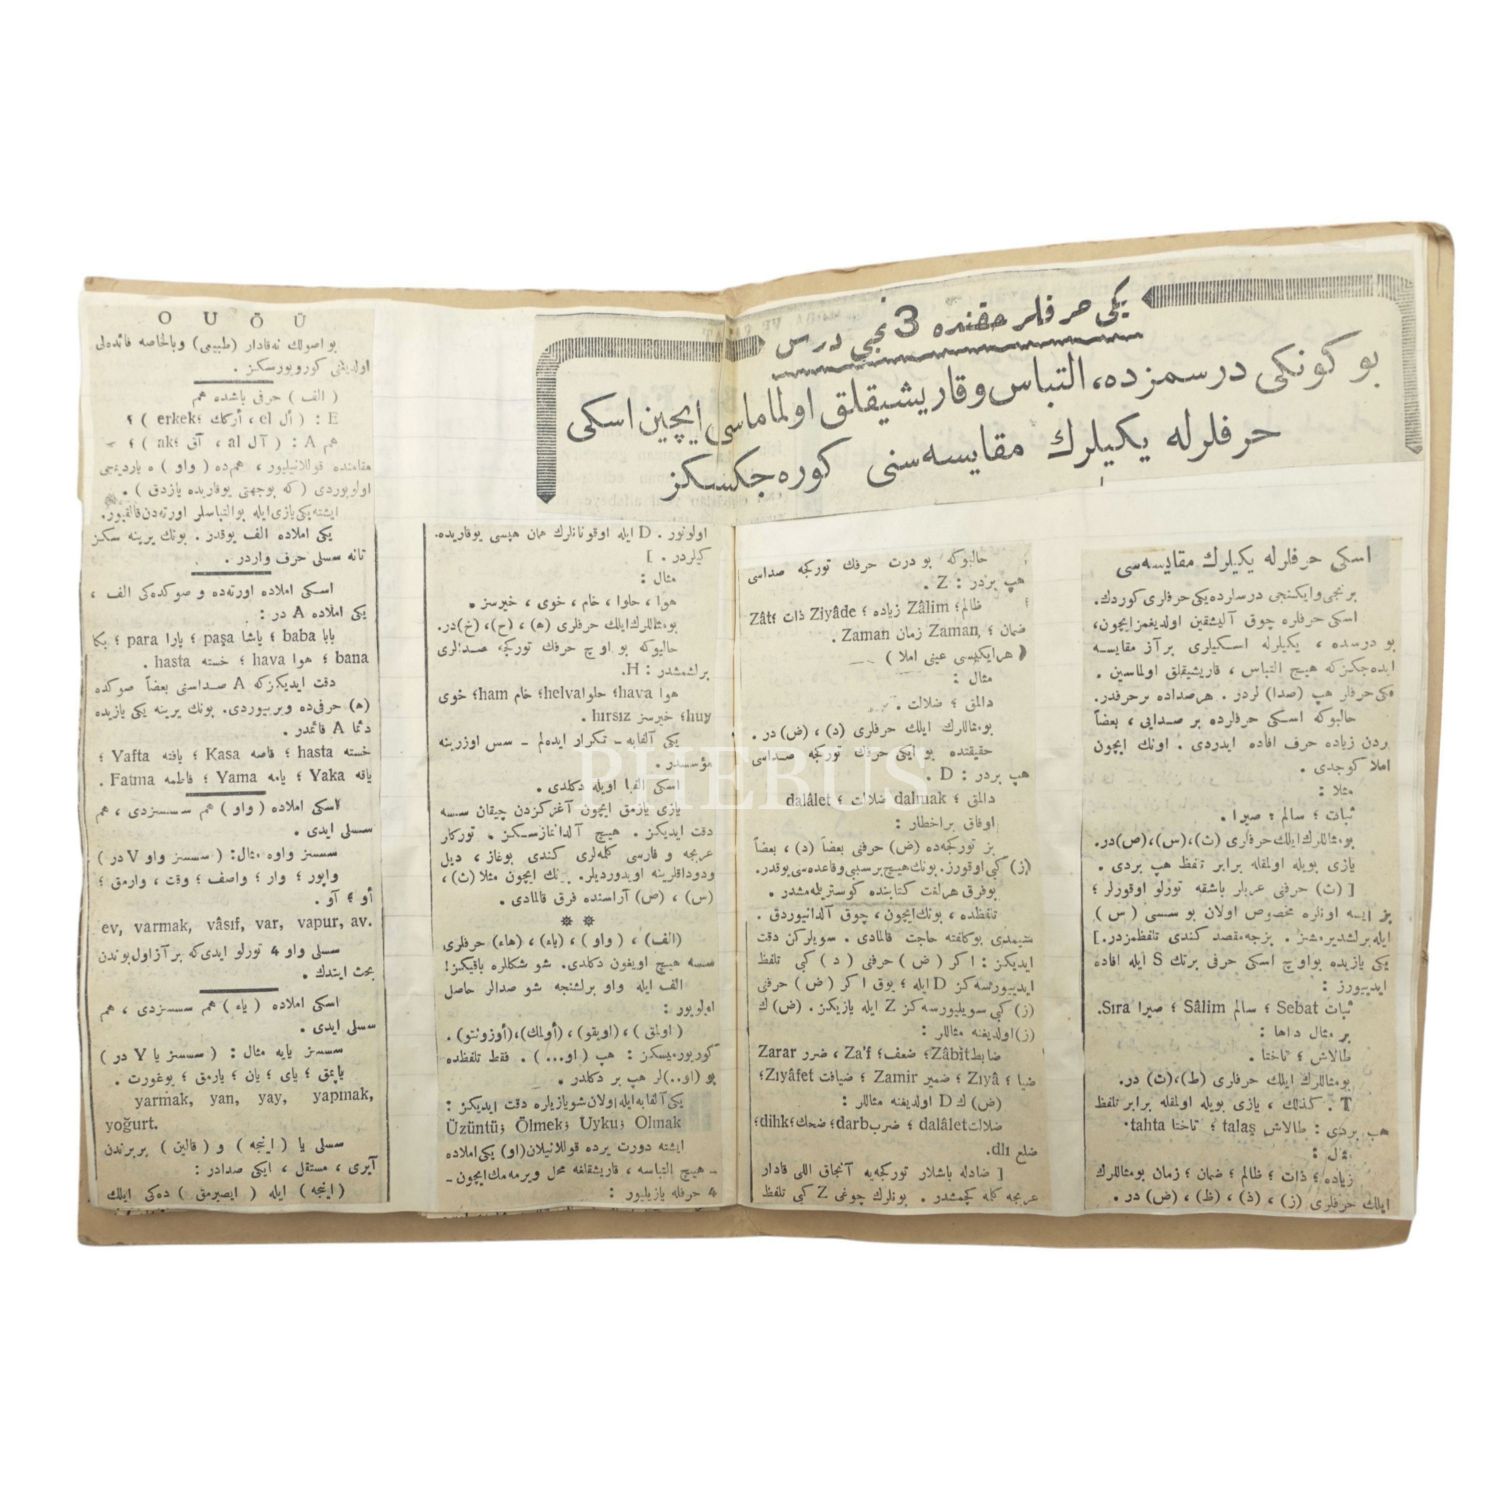 یكی حرفلر حقنده 3 نجی درس
بو كونكی درسمزده، التباس و قاریشیقلق اولماماسی ایچین اسكی
حرفلرله یكیلرك مقایسه‌سنی كوره‌جكسكز
اسكی حرفلرله یكیلرك مقایسه‌سی
برنجی و ایكنجی درسلرده یكی حرفلری كوردك.
اسكی حرفلره چوق آلیشقین اولدیغمز ایچون،
بو درسده ، یكیلرله اسكیلری بر آز مقایسه
ایده‌جكز كه هیچ التباس ، قاریشیقلق اولماسین .
یكی حرفلر هپ (صدا) لردر . هر صداده بر حرفدر.
حالبوكه اسكی حرفلرده بر صدایی ، بعضاً
بردن زیاده حرف افاده ایدردی . اونك ایچون
املا كوجدی .
مثلا :
ثبات ؛ سالم ؛ صیرا .
بو مثاللرك ایلك حرفلری (ث)،(س)،(ص)در.
یازی بویله اولمقله برابر تلفظ هپ بردی .
[ (ث) حرفی عربلر باشقه تورلو اوقورلر ؛
بز ایسه اونلره مخصوص اولان بو سسی ( س )
ایله برلشدیرمشز . بزجه مقصد كندی تلفظمزدر.]
یكی یازیده بو اوچ اسكی حرفی برتك S ایله افاده
ایدییورز :
ثبات Sebat ؛ سالم Sâlim ؛ صیرا Sıra.
بر مثال داها :
طالاش ؛ تاختا .
بومثاللرك ایلك حرفلری (ط)،(ت) در.
T . كذلك ، یازی بویله اولمقله برابر تلفظ
هپ بردی : طالاش talaş ؛ تاختا tahta.
مثال :
زیاده ؛ ذات ؛ ظالم ؛ ضمان ؛ زمان بومثاللرك
ایلك حرفلری (ز) ، (ذ) ، (ظ) ، (ض) در .
حالبوكه بو درت حرفك توركجه صداسی
هپ بردر : Z .
ظالم Zâlim ؛ زیاده Ziyâde ؛ ذات Zât
ضمان ؛ Zaman, زمان Zaman .
( هر ایكیسی عینی املا )
مثال :
دالمق ؛ ضلالت .
بومثاللرك ایلك حرفلری (د) ، (ض) در .
حقیقتده بو ایكی حرفك توركجه صداسی
هپ بردر : D .
دالمق dalmak ؛ ضلالت dalâlet
اوفاق بر اخطار :
بز توركجه‌ده (ض) حرفنی بعضاً (د) ، بعضاً
(ز) كبی اوقورز. بونك هیچ بر سببی وقاعده‌سی یوقدر.
بوفرق هر لغت كتابنده كوستریلمه‌مشدر .
تلفظده ، بونك ایچون ، چوق آلدانییوردق .
شیمدی بو كلفته حاجت قالمادی . سویلركن دقت
ایدیكز : اكر ( ض ) حرفنی ( د ) كبی تلفظ
ایدییورسه‌كز D ایله ؛ یوق اكر ( ض ) حرفنی
(ز) كبی سویلیورسه‌كز Z ایله یازیكز. (ض) ك
(ز) اولدیغنه مثاللر :
ضابط Zâbit ؛ ضعف Za'f ؛ ضرر Zarar
ضیا Zıyâ ؛ ضمیر Zamir ؛ ضیافت Zıyâfet
(ض) ك D اولدیغنه مثاللر :
ضلالت dalâlet ؛ ضرب darb ؛ ضحك dihk
ضلع dlı.
[ ضادله باشلار توركجه‌یه آنجاق اللی قادار
عربجه كله كچمشدر . بونلرك چوغی Z كبی تلفظ
اولونور . D ایله اوقونانلرك همان هپسی یوقاریده.
كیلردر . ]
مثال :
هوا ، حلوا ، خام ، خوی ، خیرسز .
بومثاللرك ایلك حرفلری (ه) ، (ح) ، (خ) در.
حالبوكه بو اوچ حرفك توركجه صدالری
برلشمشدر : H.
هوا hava ؛ حلوا helva ؛ خام ham ؛ خوی
huy ؛ خیرسز hırsız .
یكی آلفابه – تكرار ایده‌لم – سس اوزرینه
مؤسسدر .
اسكی الفبا اویله دكلدی .
یازی یازمق ایچون آغزكزدن چیقان سسه
دقت ایدیكز . هیچ آلدانمازسكز . توركلر
عربجه و فارسی كله‌لری كندی بوغاز ، دیل
ودوداقلرینه اویدوردیلر. بونك ایچون مثلا (ث) ،
(س) ، (ص) آراسنده فرق قالمادی .
(الف) ، ( واو ) ، (یاء) ، (هاء) حرفلری
سسه هیچ اویغون دكلدی. شو شكللره باقیكز!
الف ایله واو برلشنجه شو صدالر حاصل
اولویور :
( اولمق ) ، (اویقو) ، (أولمك) ،(أوزونتو) .
كورویورمیسكز : هپ ( او... ) . فقط تلفظده
بو (او..)لر هپ بر دكلدر .
یكی آلفابه ایله اولان شو یازیلره دقت ایدیكز :
Olmak ؛Uyku ؛Ölmek ؛Üzüntü
ایشته دورت یرده قوللانیلان (او) یكی املاده
– هیچ التباسه ، قاریشقلغه محل ویرمه‌مك ایچون –
4 حرفله یازیلیور :
O U Ö Ü
بو اصولك نه‌قادار (طبیعی) وبالخاصه فائده‌لی
اولدیغنی كورویورسكز .
( الف ) حرفی باشده هم
E : ( أل el ، أركك erkek ) ؟
هم A : ( آل al ، آق ak ) ؛
مقامنده قوللانیلیور ، هم‌ده ( واو ) ه یاردیمجی
اولویوردی ( كه بوجهتی یوقاریده یازدق ) .
ایشته یكی یازی ایله بو التباسلر اورته‌دن قالقیور.
یكی املاده الف یوقدر . بونك یرینه سكز
تانه سسلی حرف واردر .
اسكی املاده اورته‌ده و صوكده‌كی الف ،
یكی املاده A در :
بابا baba ؛ پاشا paşa ؛ پارا para ؛ بكا
bana ؛ هوا hava ؛ خسته hasta .
دقت ایدیكز كه A صداسنی بعضاً صوكده
(ه) حرفی‌ده ویرییوردی. بونك یرینه یكی یازیده
دئما A قائمدر.
خسته hasta ؛ قاصه Kasa ؛ یافته Yafta
یاقه Yaka ؛ یامه Yama ؛ فاطمه Fatma .
اسكی املاده ( واو ) هم سسسزدی ، هم
سسلی ایدی .
سسسز واوه مثال: ( سسسز واو V در )
واپور ؛ وار ؛ واصف ؛ وقت ، وارمق ؛
أو ؛ آو .
ev, varmak, vâsıf, var, vapur, av.
سسلی واو 4 تورلو ایدی‌كه بر آز اول بوندن
بحث ایتدك .
اسكی املاده ( یاء ) هم سسسزدی ، هم
سسلی ایدی .
سسسز یایه مثال : ( سسسز یا Y در )
یاپمق ؛ یای ؛ یان ؛ یارمق ؛ یوغورت .
yarmak, yan, yay, yapmak,
yoğurt.
سسلی یا ( اینجه ) و ( قالین ) بربرندن
آیری ، مستقل ، ایكی صدادر :
( اینجه ) ایله ( ایصیرمق ) ده‌كی ایلك
PHEBUS